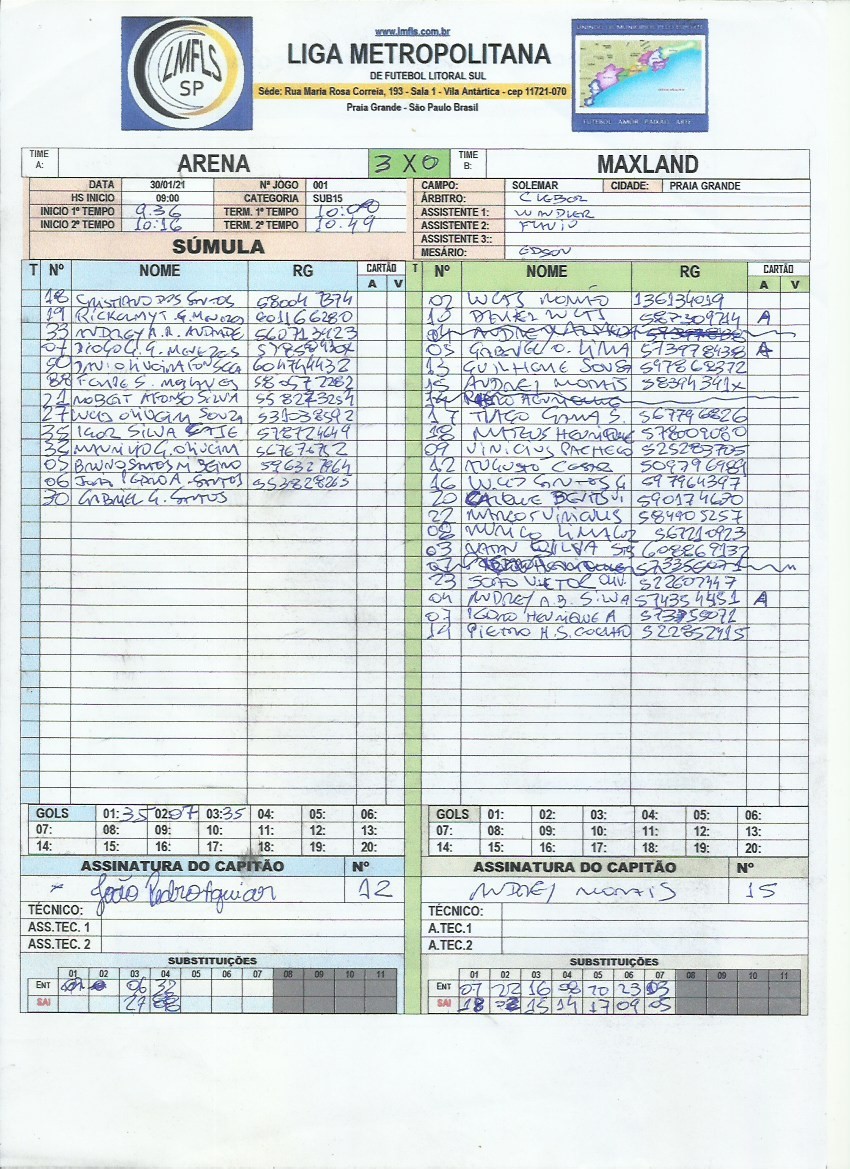 www.lmfls.com.br
LMFLS
SP
LIGA METROPOLITANA
DE FUTEBOL LITORAL SUL
Séde: Rua Maria Rosa Correia, 193 - Sala 1 - Vila Antártica - cep 11721-070
Praia Grande - São Paulo Brasil
FUTEBOL, AMOR, PAIXÃO, ARTE
TIME A: ARENA 3 X 0 TIME B: MAXLAND
DATA 30/01/21 Nº JOGO 001 CAMPO: SOLEMAR CIDADE: PRAIA GRANDE
HS INICIO 09:00 CATEGORIA SUB15 ÁRBITRO: CLEBER
INICIO 1º TEMPO 9.36 TERM. 1º TEMPO 10:00 ASSISTENTE 1: WANDER
INICIO 2º TEMPO 10:16 TERM. 2º TEMPO 10.49 ASSISTENTE 2: FLAVIO
ASSISTENTE 3::
SÚMULA MESÁRIO: EDSON
T Nº NOME RG CARTÃO A V T Nº NOME RG CARTÃO A V
18 CRISTIANO DOS SANTOS 02 LUCAS ROMÃO 136134019
19 G. MENEZES 601166280 10 587309714 A
33 ANDREY A.R. ANDRADE 560713423
07 DIOGO G. G. MENEZES 05 GABRIEL O. LIMA 573978438 A
50 DAVI OLIVEIRA FONSECA 604744432 13 GUILHERME SOUSA 597868372
88 FELIPE S. MARQUES 580577282 15 ANDREY MORAIS 58394391x
21 ROBERT AFONSO SILVA 558273254
27 LUCAS OLIVEIRA SOUZA 531038592 17 TIAGO GAMA S. 567796826
35 IGOR SILVA 578724649 18 MATEUS HENRIQUE 578009080
38 MAURILIO G. OLIVEIRA 567676752 09 VINICIUS PACHECO 525283705
05 BRUNO SANTOS M. 596327964 12 AUGUSTO CESAR 509796989
06 JOÃO PEDRO A. SANTOS 553828265 16 LUCAS SANTOS G 597964397
30 GABRIEL G. SANTOS 20 CAIQUE 590174670
22 MARCOS VINICIUS 584905257
08 MURILO 567210923
03 NATAN SILVA 608869137
23 JOÃO VICTOR OLIV. 522607447
04 ANDREY A.B. SILVA 574354451 A
07 HENRIQUE A
14 PIETRO H.S. COELHO 522852415
GOLS 01: 35 02: 07 03: 35 04: 05: 06: GOLS 01: 02: 03: 04: 05: 06:
07: 08: 09: 10: 11: 12: 13: 07: 08: 09: 10: 11: 12: 13:
14: 15: 16: 17: 18: 19: 20: 14: 15: 16: 17: 18: 19: 20:
ASSINATURA DO CAPITÃO Nº ASSINATURA DO CAPITÃO Nº
João Pedro Aguiar 12 ANDREY MORAIS 15
TÉCNICO: TÉCNICO:
ASS.TEC. 1 A.TEC.1
ASS.TEC. 2 A.TEC.2
SUBSTITUIÇÕES SUBSTITUIÇÕES
01 02 03 04 05 06 07 08 09 10 11 01 02 03 04 05 06 07 08 09 10 11
ENT 06 38 ENT 07 22 16 08 20 23 03
SAI 27 88 SAI 18 15 14 17 09 05